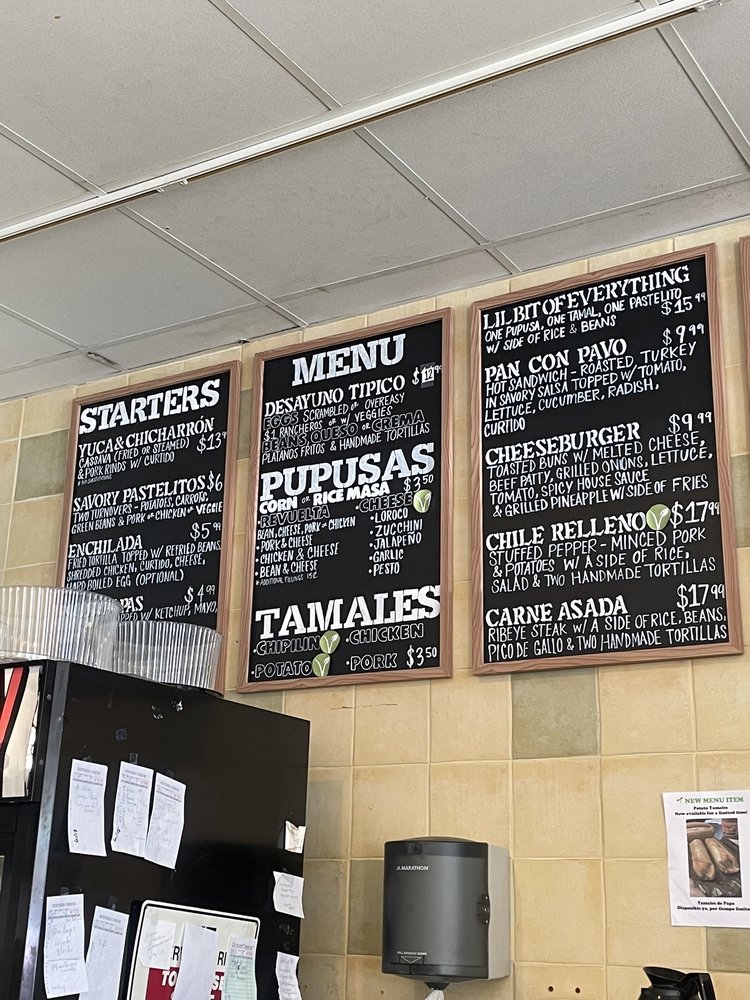 STARTERS
YUCA & CHICHARRÓN
CASSAVA (FRIED OR STEAMED) $13
& PORK RINDS W/ CURTIDO
SAVORY PASTELITOS $6
TWO TURNOVERS - POTATOES, CARROTS,
GREEN BEANS & PORK OR CHICKEN OR VEGGIE
ENCHILADA $5.99
FRIED TORTILLA TOPPED W/ REFRIED BEANS,
SHREDDED CHICKEN, CURTIDO, CHEESE,
HARD BOILED EGG (OPTIONAL)
PAS $4.99
TOPPED W/ KETCHUP, MAYO,
MENU
DESAYUNO TIPICO $12
EGGS SCRAMBLED OR OVEREASY
$1 RANCHEROS OR W/ VEGGIES
BEANS QUESO OR CREMA
PLATANOS FRITOS & HANDMADE TORTILLAS
PUPUSAS
CORN OR RICE MASA $3.50
• REVUELTA
BEAN, CHEESE, PORK OR CHICKEN
• PORK & CHEESE
• CHICKEN & CHEESE
• BEAN & CHEESE
• ADDITIONAL FILLINGS 75¢
• CHEESE
• LOROCO
• ZUCCHINI
• JALAPEÑO
• GARLIC
• PESTO
TAMALES
• CHIPILIN • CHICKEN
• POTATO • PORK $3.50
LIL BIT OF EVERYTHING
ONE PUPUSA, ONE TAMAL, ONE PASTELITO $15.99
W/ SIDE OF RICE & BEANS
PAN CON PAVO $9.99
HOT SANDWICH - ROASTED TURKEY
IN SAVORY SALSA TOPPED W/ TOMATO,
LETTUCE, CUCUMBER, RADISH,
CURTIDO
CHEESEBURGER $9.99
TOASTED BUNS W/ MELTED CHEESE,
BEEF PATTY, GRILLED ONIONS, LETTUCE,
TOMATO, SPICY HOUSE SAUCE
& GRILLED PINEAPPLE W/ SIDE OF FRIES
CHILE RELLENO $17.99
STUFFED PEPPER - MINCED PORK
& POTATOES W/ A SIDE OF RICE,
SALAD & TWO HANDMADE TORTILLAS
CARNE ASADA $17.99
RIBEYE STEAK W/ A SIDE OF RICE, BEANS,
PICO DE GALLO & TWO HANDMADE TORTILLAS
MARATHON
NEW MENU ITEM
Potato Tamales
Now available for a limited time!
Tamales de Papa
Disponible ya, por tiempo limita
TO